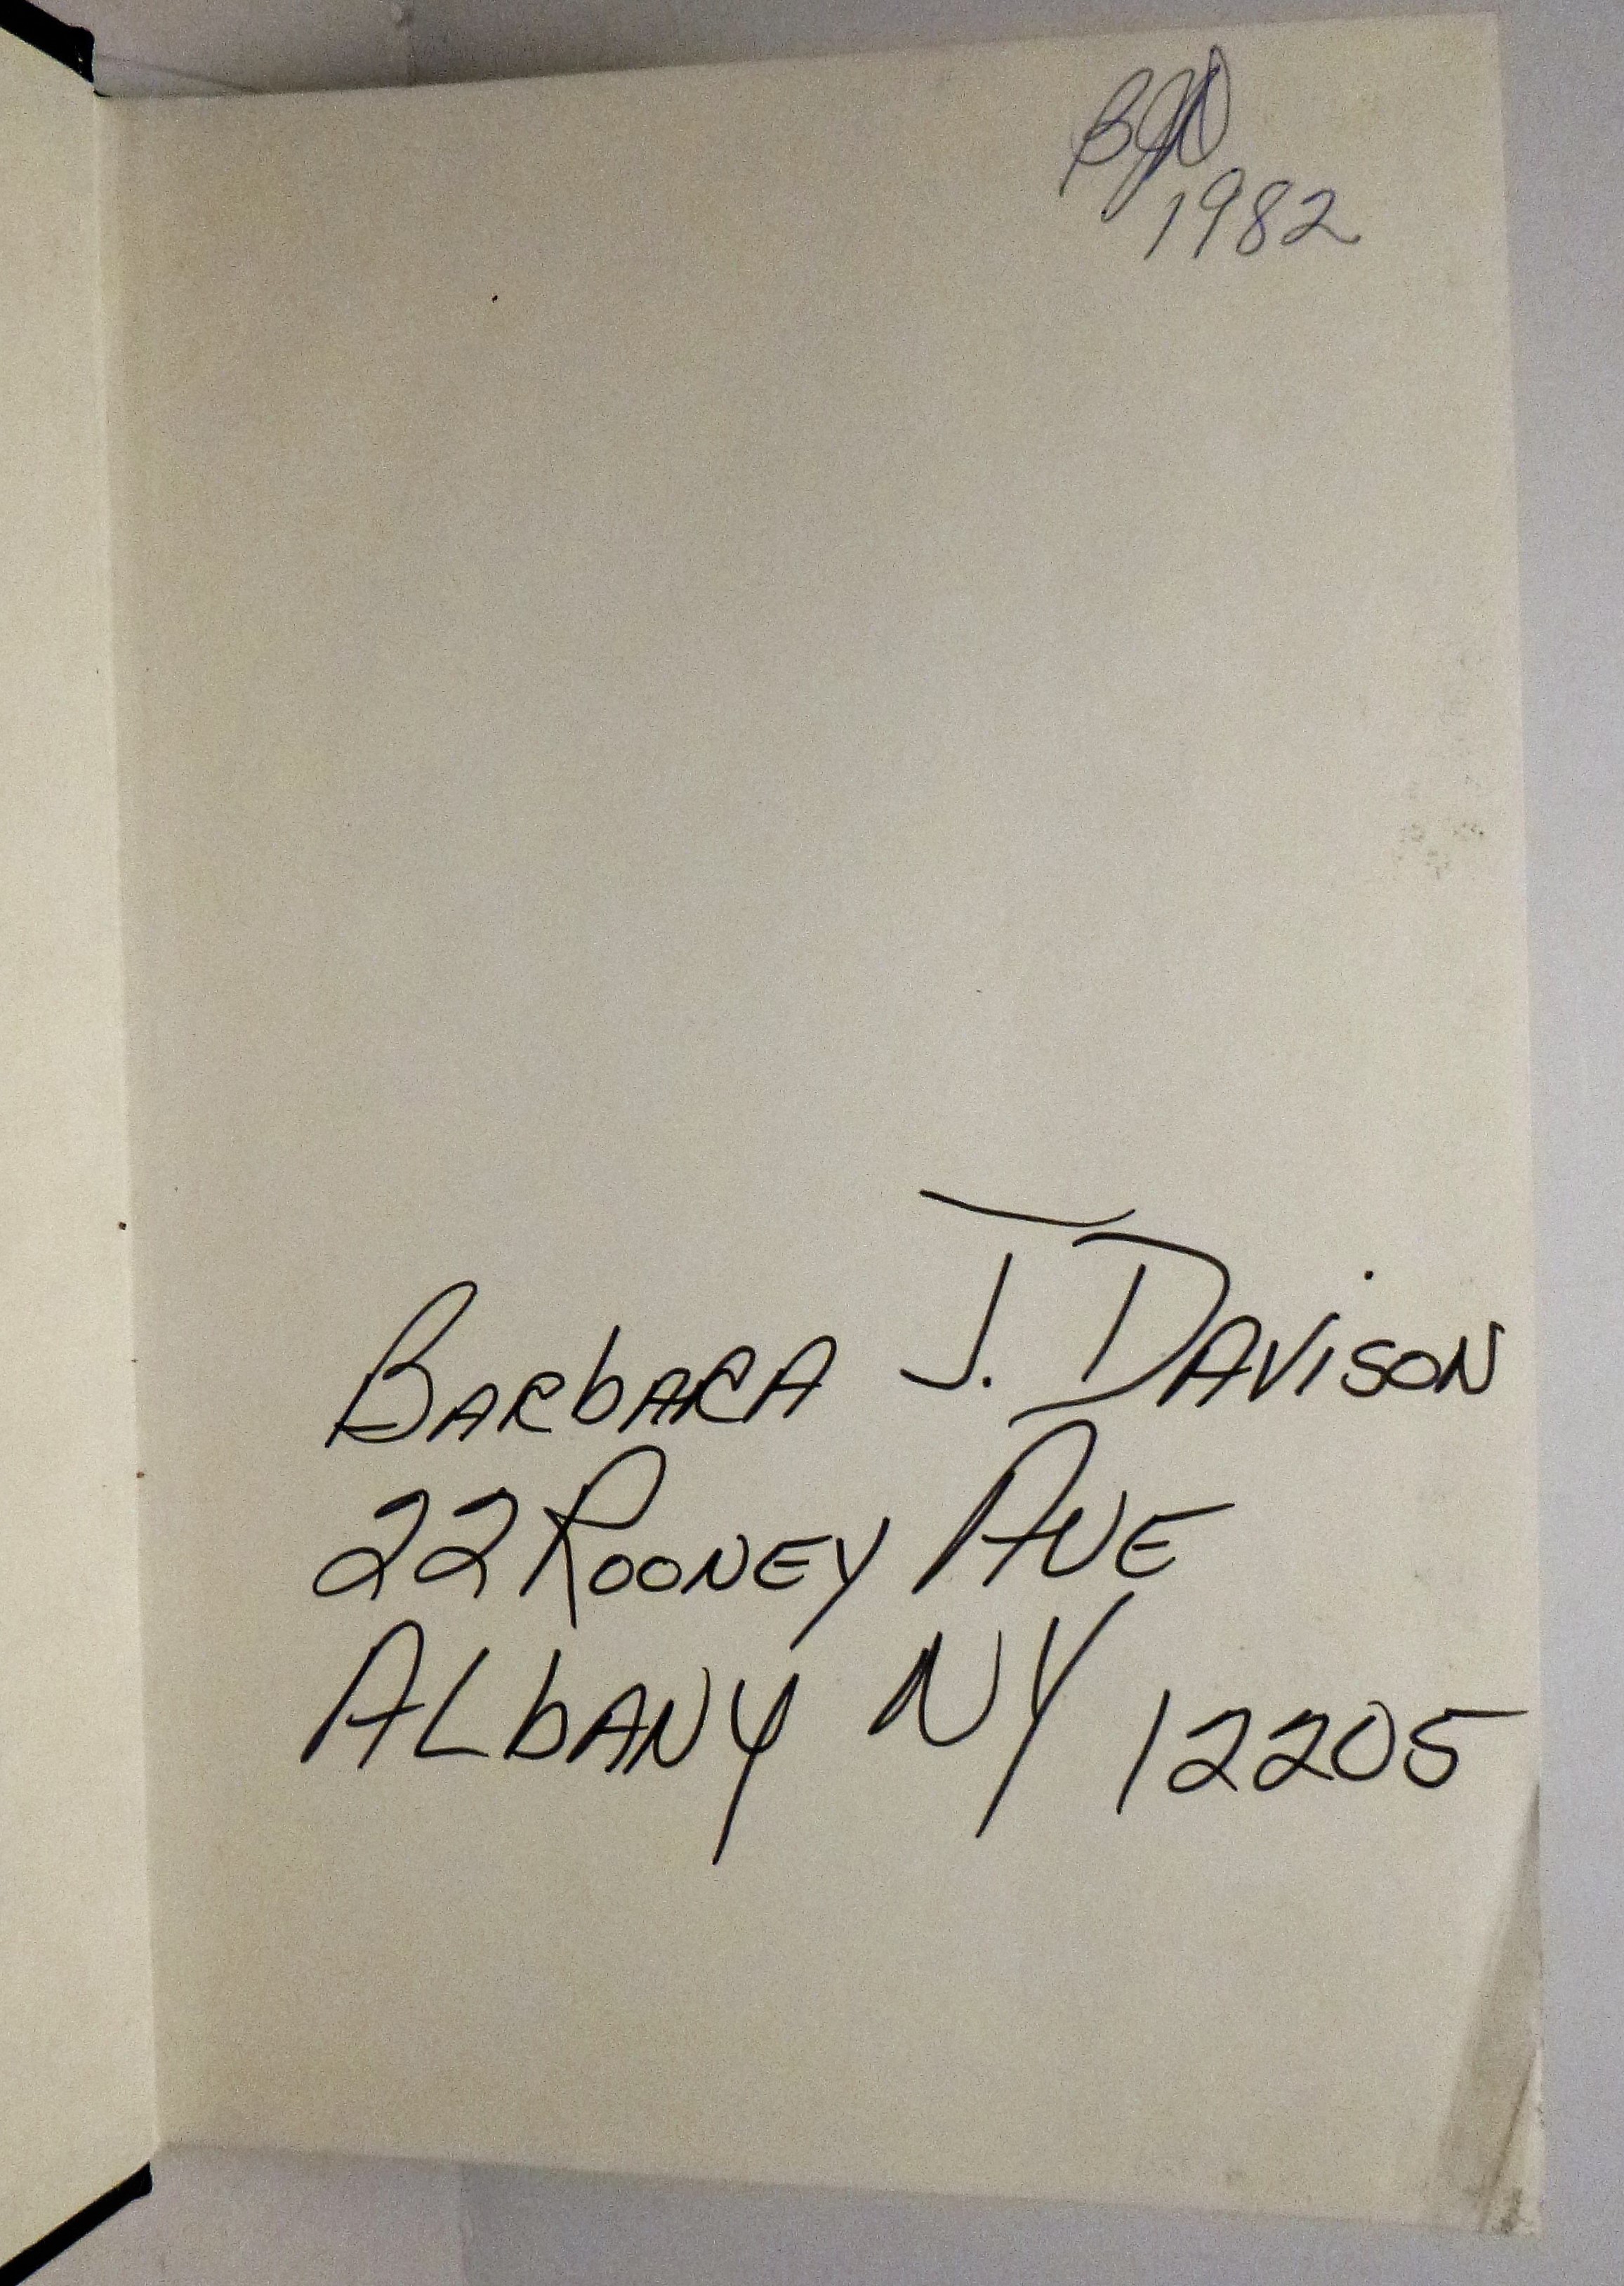 BJD
1982
BARbARA J. DAViSON
22 ROONEY AVE
ALbANY NY 12205